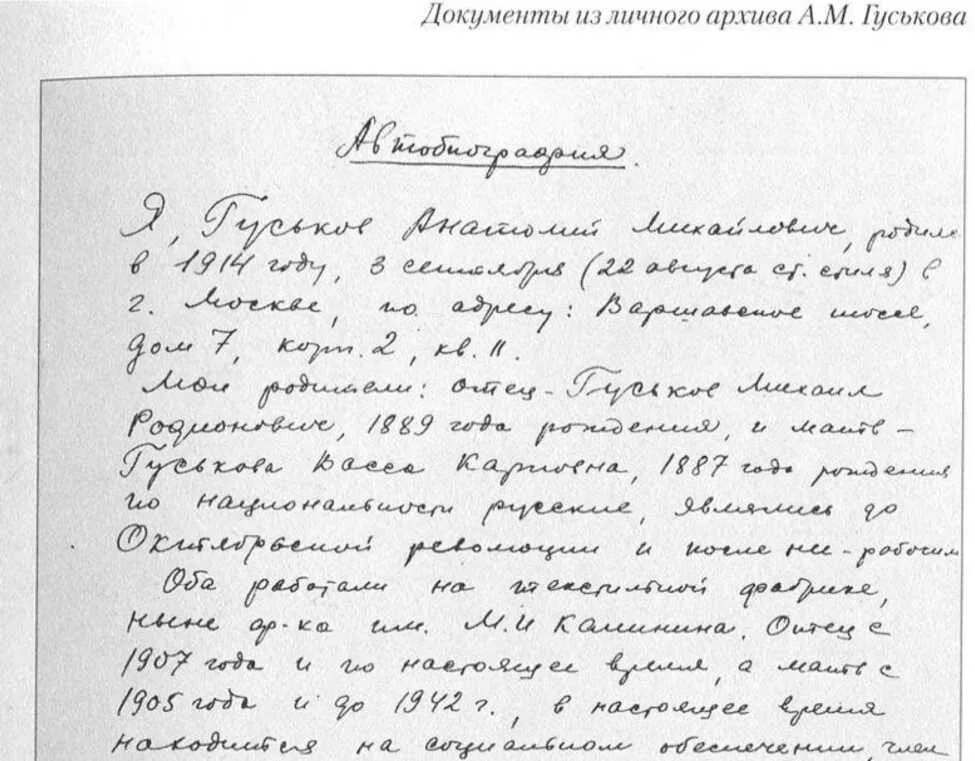 Документы из личного архива А.М. Гуськова
Автобиография.
Я, Гуськов Анатолий Михайлович, родилс
в 1914 году, 3 сентября (22 августа ст. стиля) в
г. Москве, по адресу: Варшавское шоссе,
дом 7, корп. 2, кв. 11.
Мои родители: отец - Гуськов Михаил
Родионович, 1889 года рождения, и мать -
Гуськова Васса Карповна, 1887 года рождения
по национальности русские, являлись до
Октябрьской революции и после нее - рабочим
Оба работали на текстильной фабрике,
ныне ф-ка им. М.И Калинина. Отец с
1907 года и по настоящее время, а мать с
1905 года и до 1942 г., в настоящее время
находится на социальном обеспечении, член